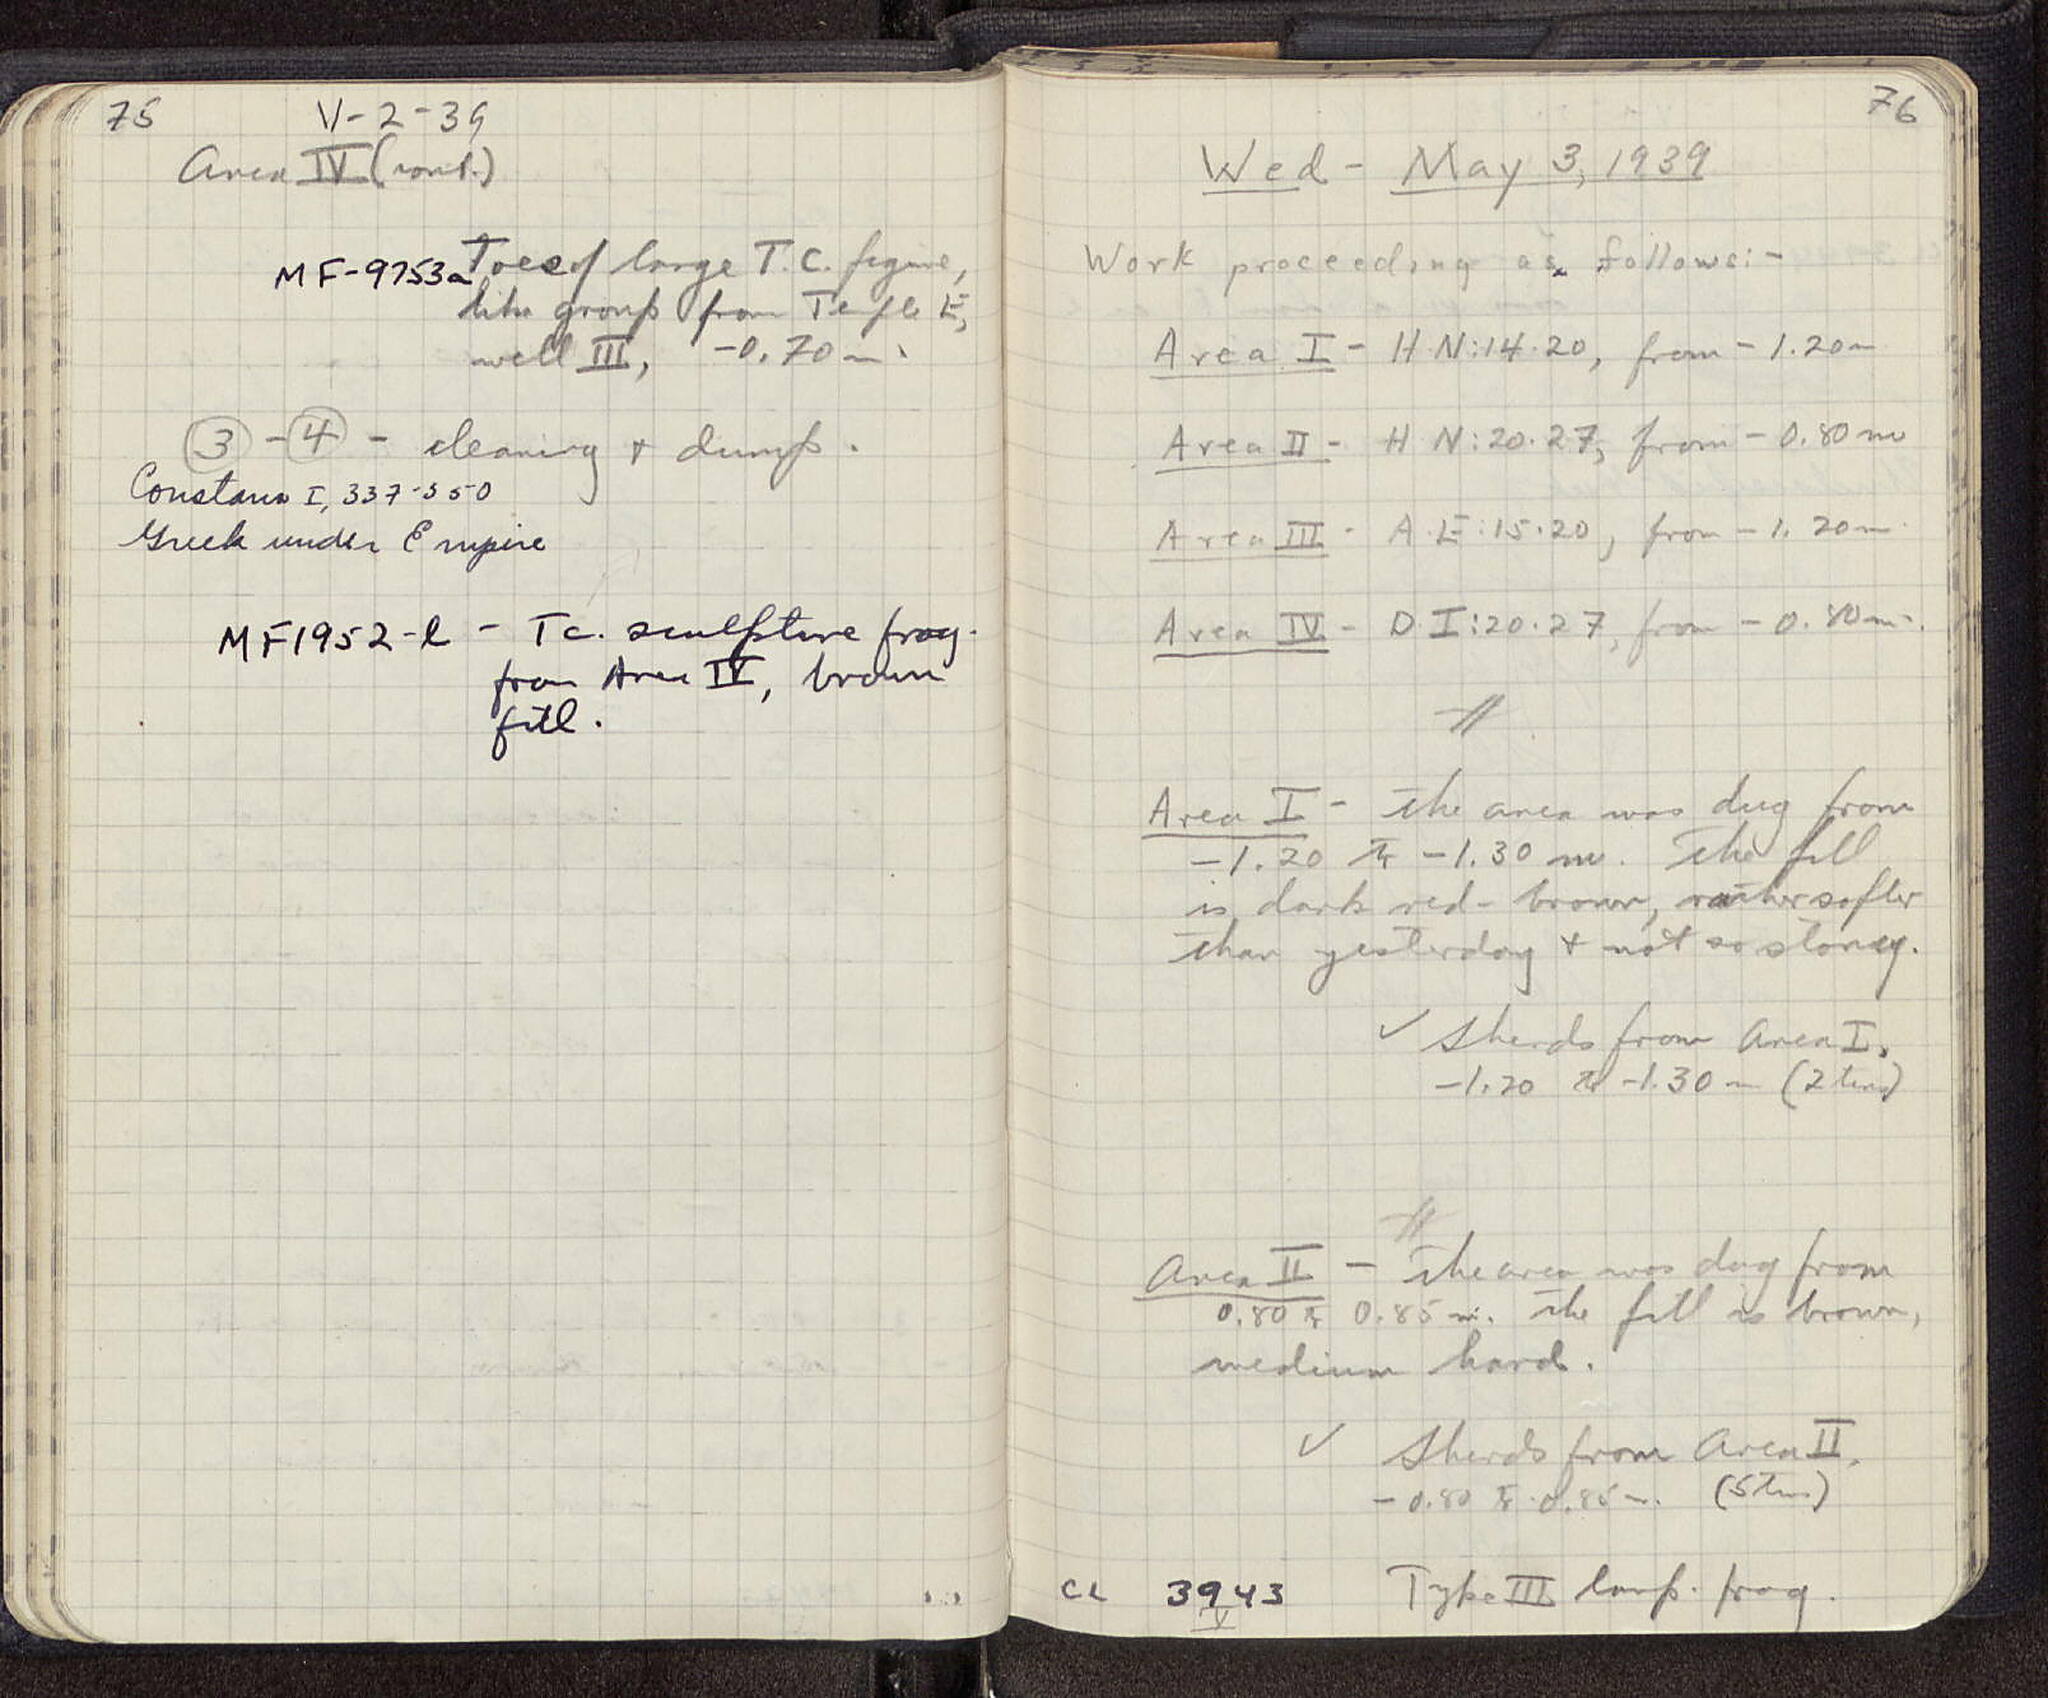 75
V-2-39
Area IV (cont.)
MF-9753a Toe of large T.C. figure,
like group from Temple E,
well III, -0.70 m.
3 - 4 - cleaning + dump.
Constans I, 337-350
Greek under Empire
MF1952-l - Tc. sculpture frag.
from Area IV, brown
fill.
76
Wed - May 3, 1939
Work proceeding as follows:-
Area I - H-N:14-20, from -1.20m
Area II - H-N:20-27, from -0.80 m
Area III - A-E:15-20, from -1.20m.
Area IV - D-I:20-27, from -0.80m.
Area I - The area was dug from
-1.20 to -1.30 m. The fill
is dark red-brown, rather softer
than yesterday + not so stoney.
✓ Sherds from Area I,
-1.20 to -1.30 m (2 tins)
Area II - The area was dug from
0.80 to 0.85 m. The fill is brown,
medium hard.
✓ Sherds from Area II,
-0.80 to -0.85 m. (5 tins)
CL 3943 Type III lamp. frag.
V